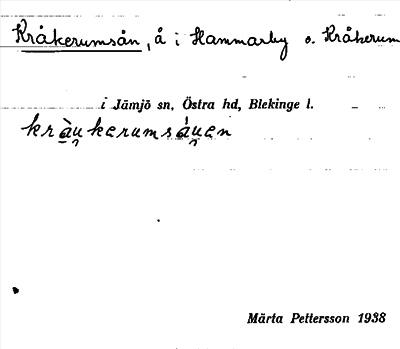 Kråkerumsån, å i Hammarby o. Kråkerum
i Jämjö sn, Östra hd, Blekinge l.
kràu̯kerumsáu̯en
Märta Pettersson 1938